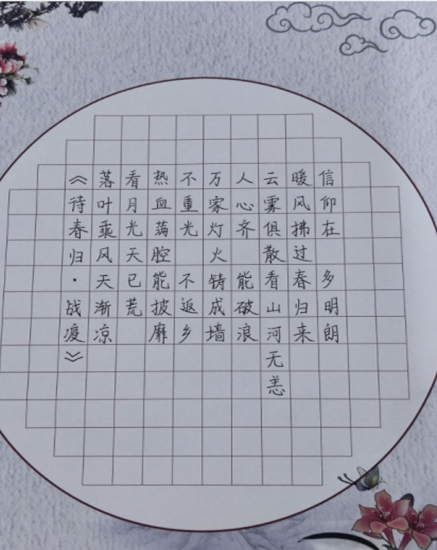 信仰在 多明朗
暖风拂过春归来
云雾俱散看山河无恙
人心齐 能破浪
万家灯火铸成墙
不重光 不返乡
热血满腔能披靡
看月光天已荒
落叶乘风天渐凉
《待春归·战疫》